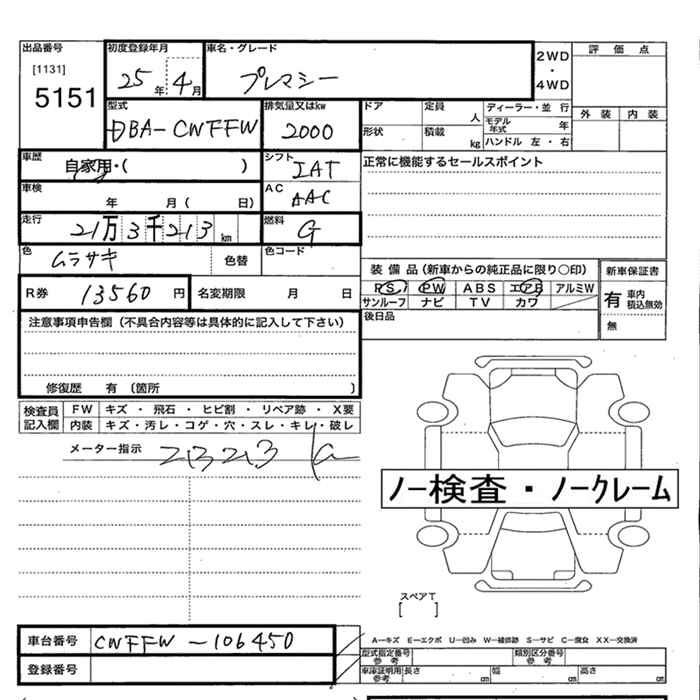 出品番号 初度登録年月 車名・グレード 2WD・4WD 評価点
[1131]
5151 25年 4月 プレマシー
外装 内装
型式 排気量又はkw ドア 定員 人 ディーラー・並行
DBA-CWFFW 2000 形状 積載 kg モデル年式 年
ハンドル 左・右
車歴 自家用・( ) シフト IAT 正常に機能するセールスポイント
車検 年 月( 日) AC AAC
走行 21万3千213km 燃料 G
色 ムラサキ 色替 色コード
装備品(新車からの純正品に限り○印) 新車保証書
R券 13560円 名変期限 月 日 PS PW ABS エアB アルミW 有 車内積込無効
サンルーフ ナビ TV カワ
注意事項申告欄(不具合内容等は具体的に記入して下さい) 後日品 無
修復歴 有(箇所 )
検査員記入欄 FW キズ・飛石・ヒビ割・リペア跡・X要
内装 キズ・汚レ・コゲ・穴・スレ・キレ・破レ
メーター指示
ノー検査・ノークレーム
スペアT
[ ]
車台番号 CWFFW-106450 A−キズ E−エクボ U−凹み W−補修跡 S−サビ C−腐食 XX−交換済
型式指定番号 参考 類別区分番号 参考
登録番号 車庫証明用参考 長さ cm 幅 cm 高さ cm